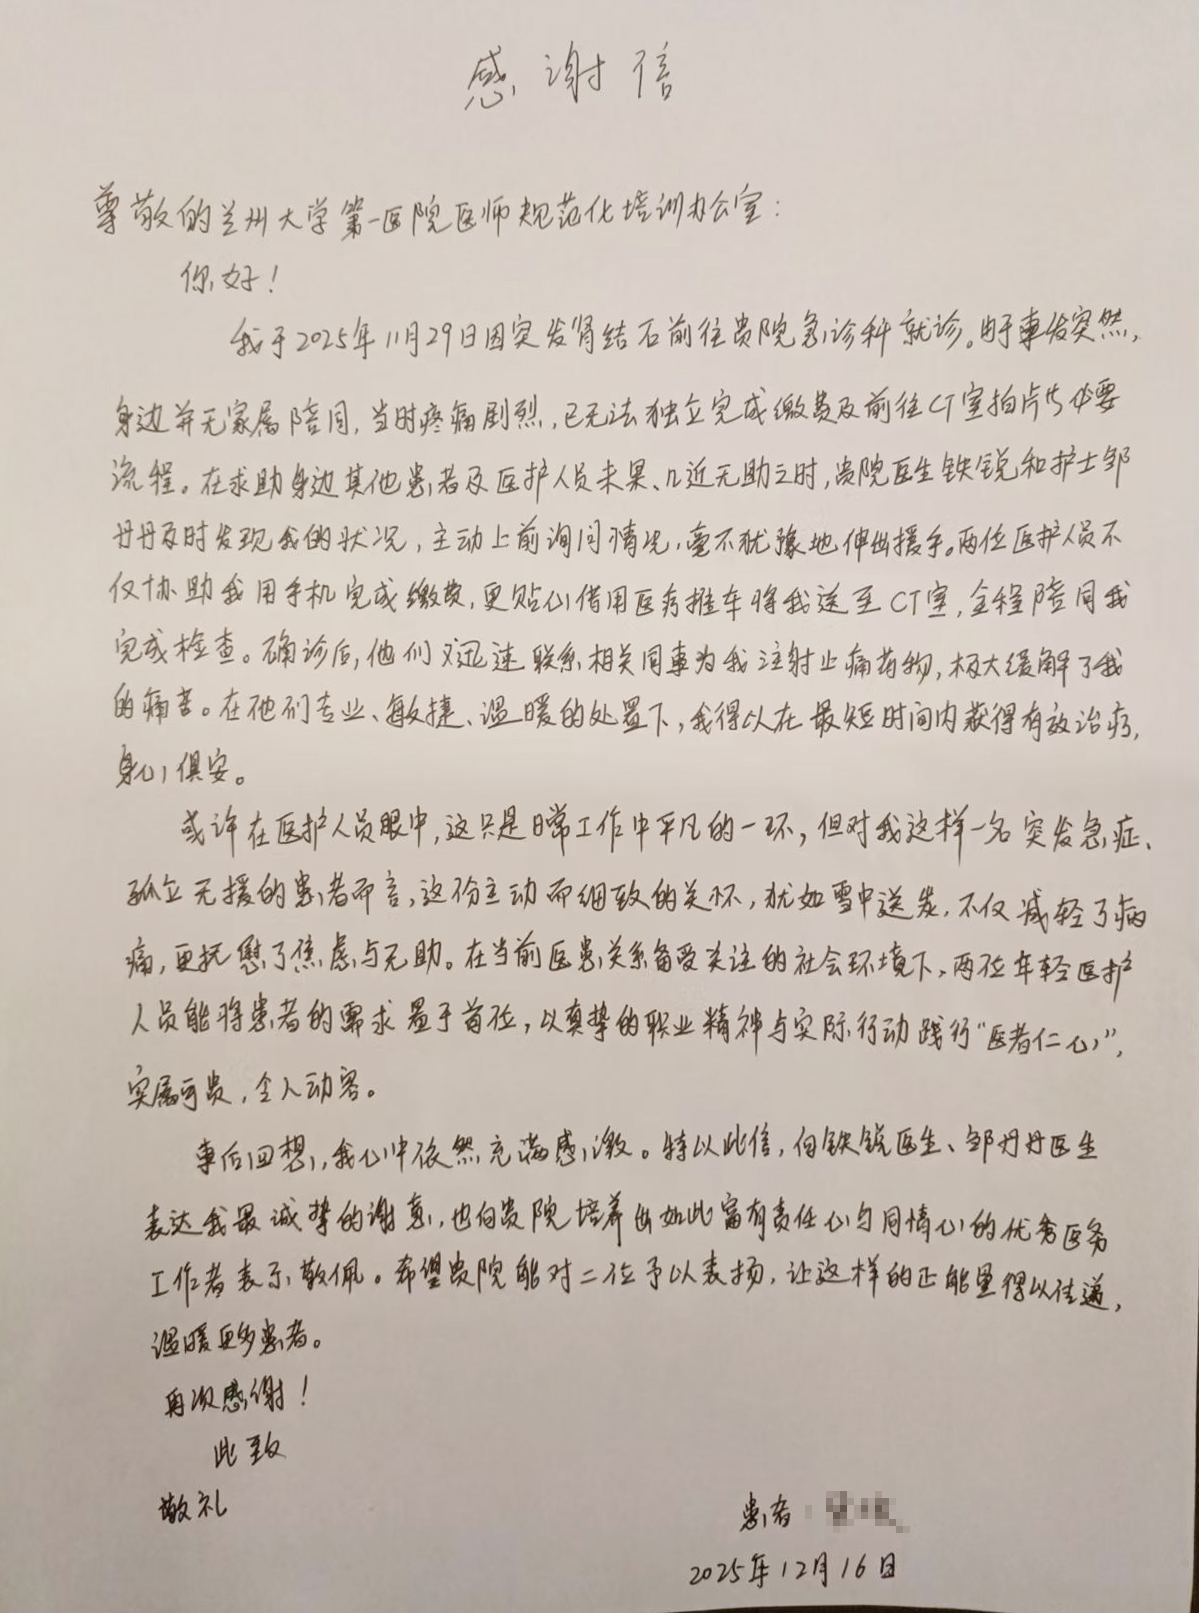 感谢信
尊敬的兰州大学第一医院医师规范化培训办公室：
你好！
我于2025年11月29日因突发肾结石前往贵院急诊科就诊。由于事发突然，
身边并无家属陪同，当时疼痛剧烈，已无法独立完成缴费及前往CT室拍片等必要
流程。在求助身边其他患者及医护人员未果、几近无助之时，贵院医生铁锐和护士邹
丹丹及时发现我的状况，主动上前询问情况，毫不犹豫地伸出援手。两位医护人员不
仅协助我用手机完成缴费，更贴心借用医疗推车将我送至CT室，全程陪同我
完成检查。确诊后，他们又迅速联系相关同事为我注射止痛药物，极大缓解了我
的痛苦。在他们专业、敏捷、温暖的处置下，我得以在最短时间内获得有效治疗，
身心俱安。
或许在医护人员眼中，这只是日常工作中平凡的一环，但对我这样一名突发急症、
孤立无援的患者而言，这份主动而细致的关怀，犹如雪中送炭，不仅减轻了病
痛，更抚慰了焦虑与无助。在当前医患关系备受关注的社会环境下，两位年轻医护
人员能将患者的需求置于首位，以真挚的职业精神与实际行动践行“医者仁心”，
实属可贵，令人动容。
事后回想，我心中依然充满感激。特以此信，向铁锐医生、邹丹丹医生
表达我最诚挚的谢意，也向贵院培养出如此富有责任心与同情心的优秀医务
工作者表示敬佩。希望贵院能对二位予以表扬，让这样的正能量得以传递，
温暖更多患者。
再次感谢！
此致
敬礼
患者：
2025年12月16日